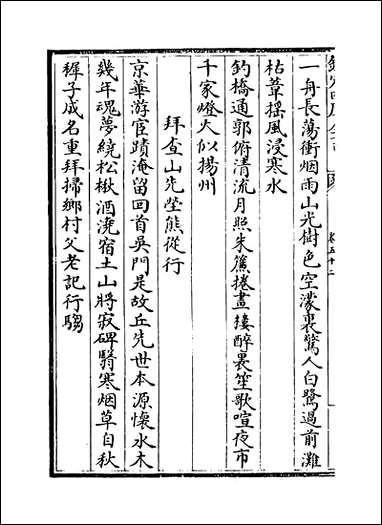 欽定四庫全書
卷五十二
一舟長蕩衝烟雨山光樹色空濛裏驚人白鷺過前灘
枯葦揺風浸寒水
釣橋通郭俯清流月照朱簾捲畫樓醉裏笙歌喧夜市
千家燈火似揚州
拜查山先塋熊從行
京華游宦蹟淹留回首吳門是故丘先世本源懷水木
幾年魂夢繞松楸酒澆宿土山將寂碑翳寒烟草自秋
穉子成名重拜掃鄉村父老記行騶